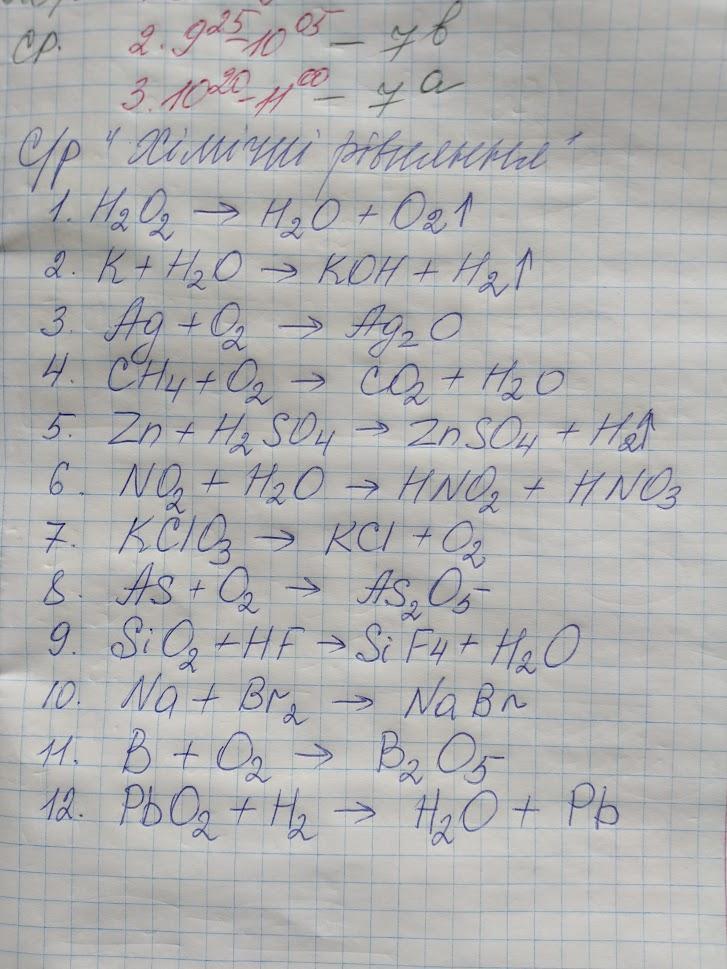 ср. 2. 9²⁵-10⁰⁵ – 7в
3. 10²⁰-11⁰⁰ – 7а
С/р "Хімічні рівняння"
1. H₂O₂ → H₂O + O₂↑
2. K + H₂O → KOH + H₂↑
3. Ag + O₂ → Ag₂O
4. CH₄ + O₂ → CO₂ + H₂O
5. Zn + H₂SO₄ → ZnSO₄ + H₂↑
6. NO₂ + H₂O → HNO₂ + HNO₃
7. KClO₃ → KCl + O₂
8. As + O₂ → As₂O₅
9. SiO₂ + HF → SiF₄ + H₂O
10. Na + Br₂ → NaBr
11. B + O₂ → B₂O₅
12. PbO₂ + H₂ → H₂O + Pb